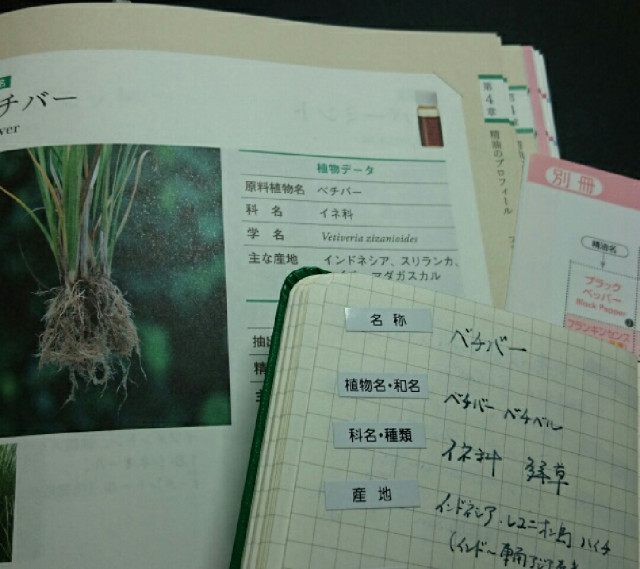 チバー
ver
植物データ
原料植物名 ベチバー
科 名 イネ科
学 名 Vetiveria zizanioides
主な産地 インドネシア、スリランカ、
マダガスカル
抽出
精
主
第4章
精油のプロフィール
別冊
精油名
ブラック
ペッパー
Black Pepper
フランキンセンス
名 称 ベチバー
植物名・和名 ベチバー ベチベル
科名・種類 イネ科 草
産 地 インドネシア・レユニオン島 ハイチ
(インド〜東南アジア